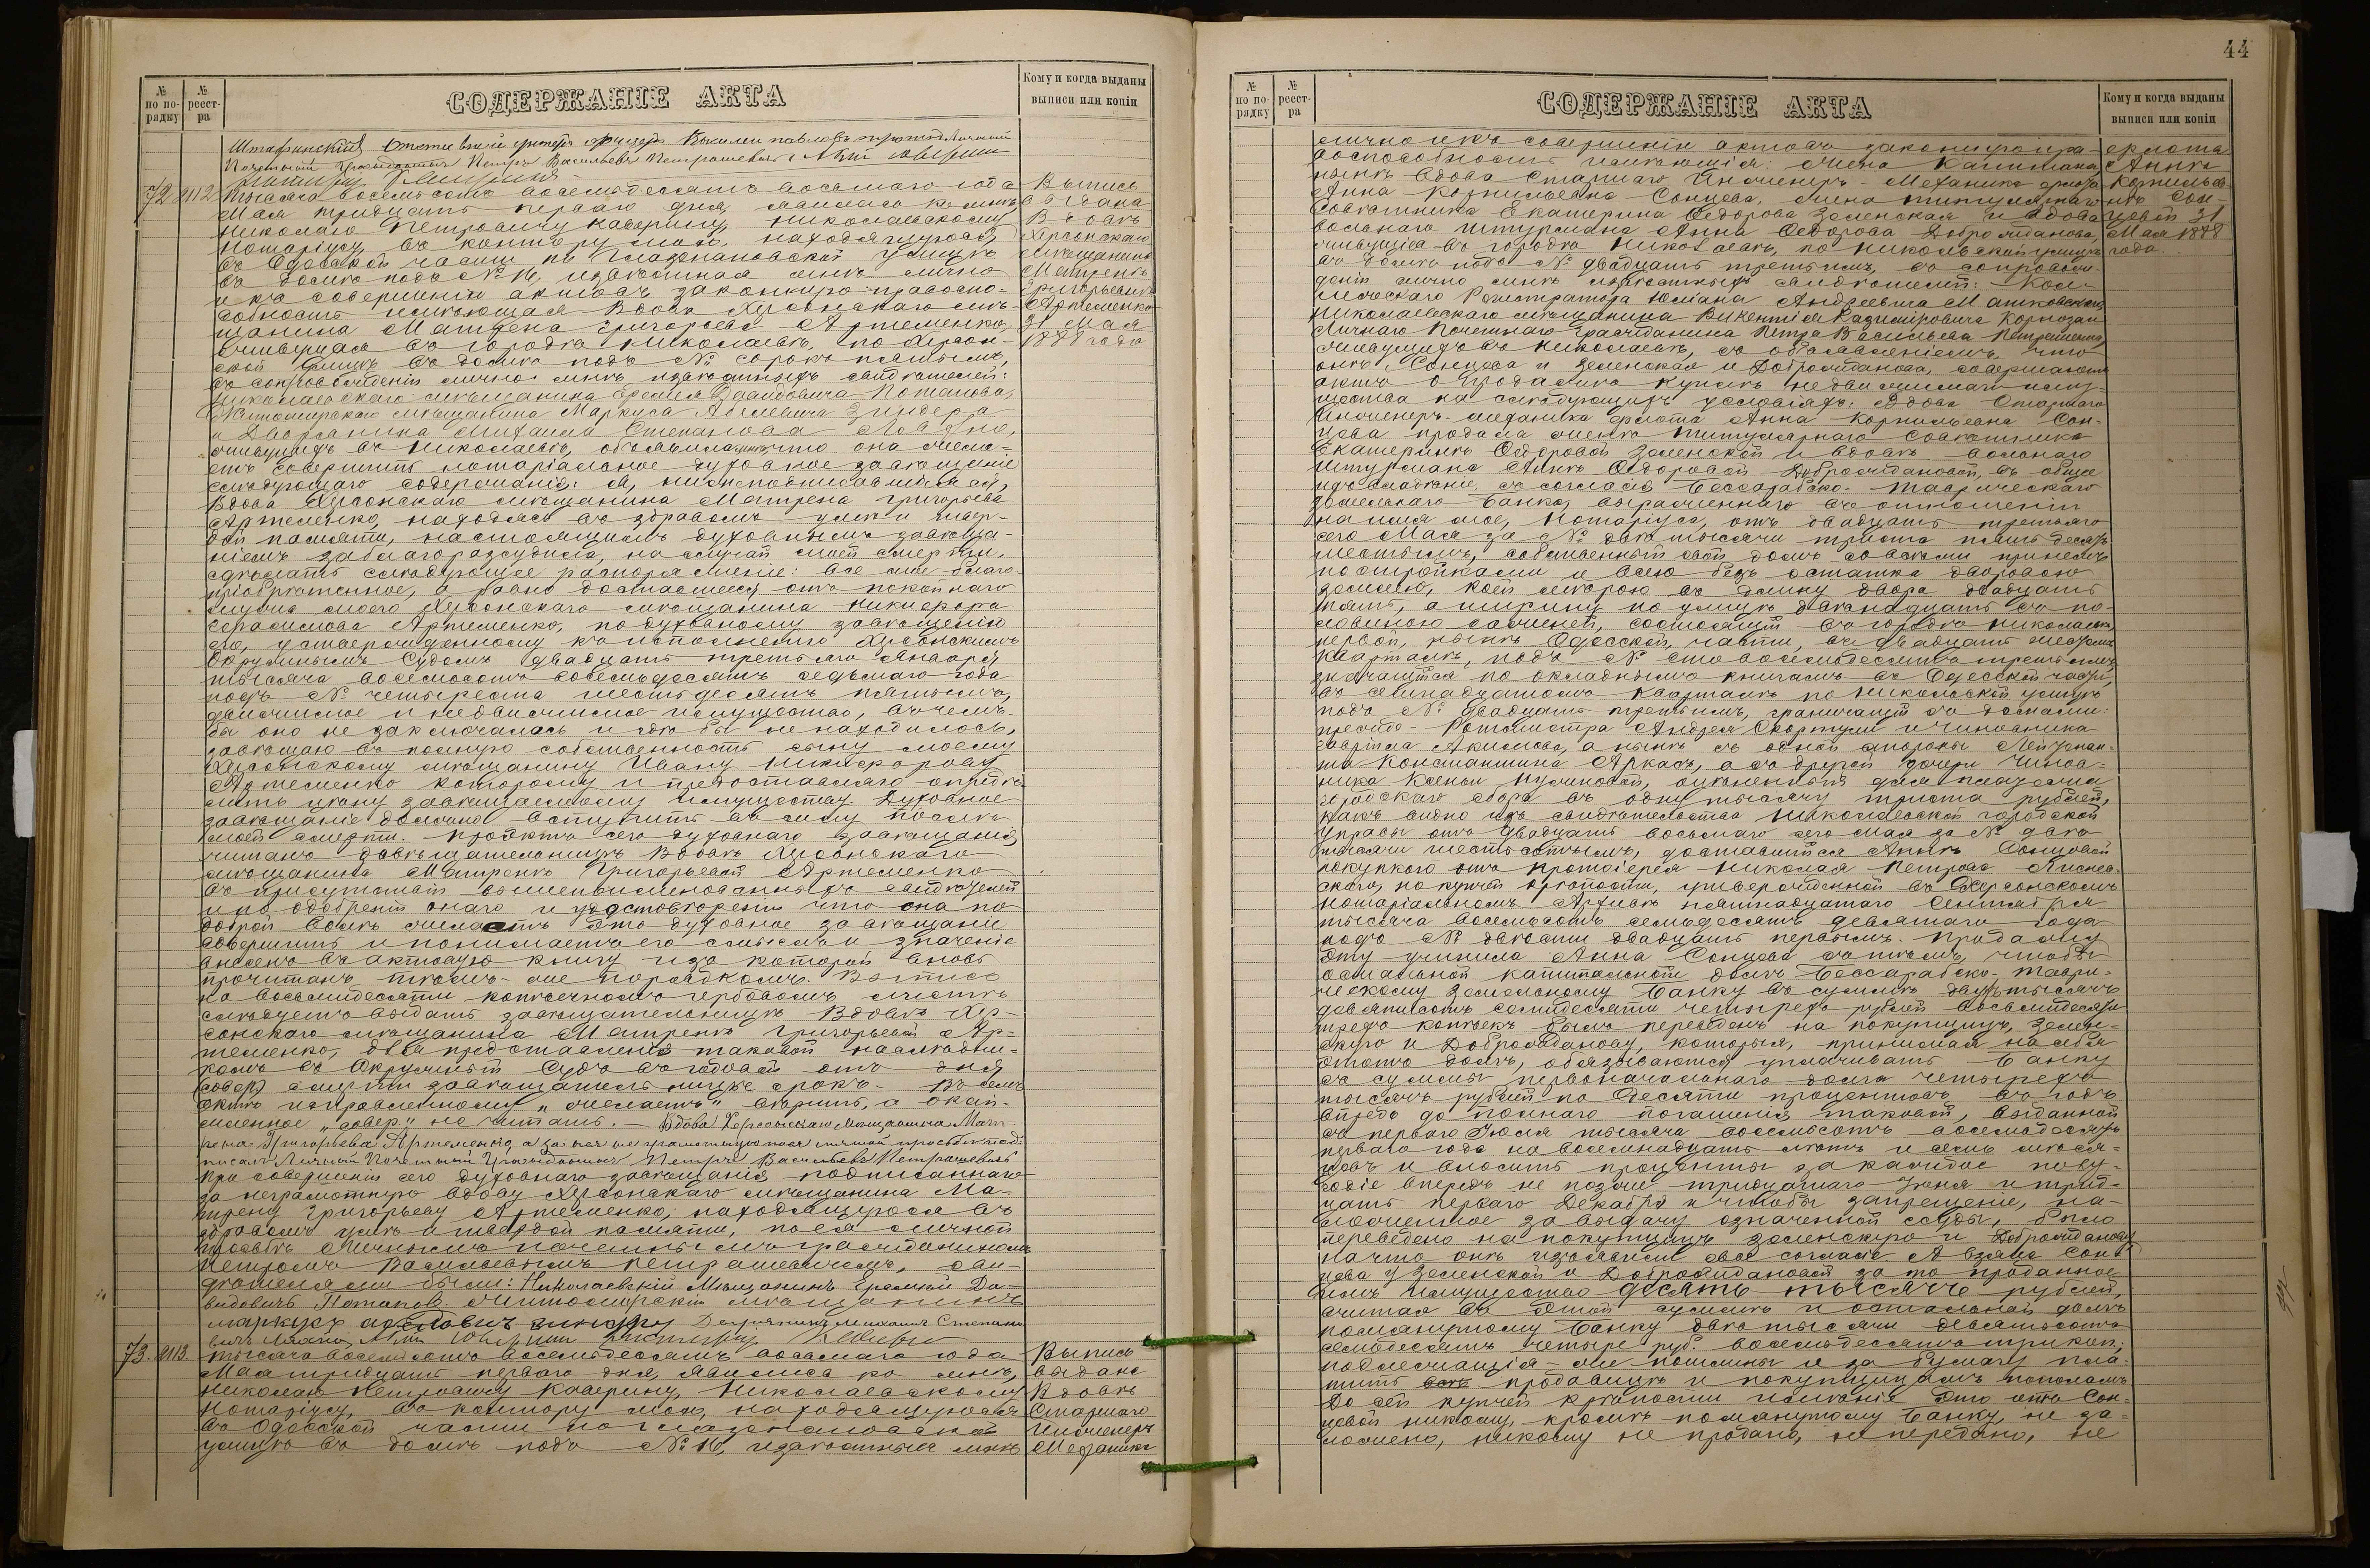 № по порядку
№ реестра
СОДЕРЖАНІЕ АКТА
Кому и когда выданы выписи или копіи
Почетный Гражданинъ Петръ Васильевъ Петрашевичъ
72 2112 Тысяча восемьсотъ восемьдесятъ восьмаго года
Мая тридцать перваго дня, явилась ко мнѣ,
Николаю Петровичу Каверину, Николаевскому
Нотаріусу, въ контору мою, находящуюся
въ Одесской части по Глазенаповской улицѣ
въ домѣ подъ № 16, извѣстная мнѣ лично
и къ совершенію актовъ законную правоспо-
собность имѣющая Вдова Херсонскаго мѣ-
щанина Матрена Григорьева Артеменко,
живущая въ городѣ Николаевѣ, по Херсон-
ской улицѣ въ домѣ подъ № сорокъ пятымъ,
въ сопровожденіи лично мнѣ извѣстныхъ свидѣтелей:
Николаевскаго мѣщанина Еремея Давидовича Потапова,
Житомирскаго мѣщанина Маркуса Абелевича Зингера
и Дворянина Михаила Степанова
живущихъ въ Николаевѣ, объявила, что она жела-
етъ совершить нотаріальное духовное завѣщаніе
слѣдующаго содержанія: Я, нижеподписавшаяся,
Вдова Херсонскаго мѣщанина Матрена Григорьева
Артеменко, находясь въ здравомъ умѣ и твер-
дой памяти, настоящимъ духовнымъ завѣща-
ніемъ заблагоразсудила, на случай моей смерти,
сдѣлать слѣдующее распоряженіе: все мое благо-
пріобрѣтенное, а равно доставшееся отъ покойнаго
мужа моего Херсонскаго мѣщанина Никифора
Герасимова Артеменко, по духовному завѣщанію
его, утвержденному къ исполненію Херсонскимъ
Окружнымъ Судомъ двадцать третьяго Января
тысяча восемьсотъ восемьдесятъ седьмаго года
подъ № четыреста шестьдесятъ пятымъ,
движимое и недвижимое имущество, въ чемъ
бы оно не заключалось и гдѣ бы не находилось,
завѣщаю въ полную собственность сыну моему
Херсонскому мѣщанину Ивану Никифорову
Артеменко которому и предоставляю опредѣ-
лить цѣну завѣщаемому имуществу. Духовное
завѣщаніе должно вступить въ силу послѣ
моей смерти. Проэктъ сего духовнаго завѣщанія,
читанъ завѣщательницѣ Вдовѣ Херсонскаго
мѣщанина Матренѣ Григорьевой Артеменко
въ присутствіи вышепоименованныхъ свидѣтелей
и по одобреніи онаго и удостовѣреніи что она по
доброй волѣ желаетъ это духовное завѣщаніе
совершить и понимаетъ его смыслъ и значеніе
внесенъ въ актовую книгу изъ которой вновь
прочитанъ тѣмъ-же порядкомъ. Выпись
на восьмидесяти копѣечномъ гербовомъ листѣ
слѣдуетъ выдать завѣщательницѣ Вдовѣ Хер-
сонскаго мѣщанина Матренѣ Григорьевой Ар-
теменко, для представленія таковой наслѣдни-
комъ въ Окружный Судъ въ годовой отъ дня
совер) смерти завѣщательницы срокъ. Въ семъ
актѣ исправленному „желаетъ" вѣрить, а окай-
мленное „совер" не читать. — Вдова Херсонскаго Мѣщанина Мат-
рена Григорьева Артеменко, а за нея неграмотную по ея личной просьбѣ под-
писалъ Личный Почетный Гражданинъ Петръ Васильевъ Петрашевичъ
При совершеніи сего духовнаго завѣщанія, подписаннаго
за неграмотную вдову Херсонскаго мѣщанина Ма-
трену Григорьеву Артеменко, находящуюся въ
здравомъ умѣ и твердой памяти, по ея личной
просьбѣ Личнымъ почетнымъ гражданиномъ
Петромъ Васильевымъ Петрашевичемъ, сви-
дѣтелями были: Николаевскій Мѣщанинъ Еремей Да-
видовичъ Потаповъ. Житомирскій мѣщанинъ
Маркусъ Абелович Зингеръ Дворянинъ Михаилъ Степано
73. 2113. Тысяча восемьсотъ восемьдесятъ восьмаго года
Мая тридцать перваго дня, явились ко мнѣ,
Николаю Петровичу Каверину, Николаевскому
Нотаріусу, въ контору мою, находящуюся
въ Одесской части по Глазенаповской
улицѣ въ домѣ подъ № 16, извѣстныя мнѣ
Выпись
выдана
Вдовѣ
Херсонскаго
мѣщанина
Матренѣ
Григорьевой
Артеменко
31 Мая
1888 года
Выпись
выдана
Вдовѣ
Старшаго
Инженеръ
Механика
44
№ по порядку
№ реестра
СОДЕРЖАНІЕ АКТА
Кому и когда выданы выписи или копіи
лично и къ совершенію актовъ законную пра-
воспособность имѣющія: жена Капитана,
нынѣ вдова Старшаго Инженеръ-Механика флота
Анна Корнильевна Сонцева, жена титулярнаго
Совѣтника Екатерина Ѳедорова Зеленская и вдова
вольнаго штурмана Анна Ѳедорова Доброжданова,
живущія въ городѣ Николаевѣ, по Никольской улицѣ
въ домѣ подъ № двадцать третьимъ, въ сопровож-
деніи лично мнѣ извѣстныхъ свидѣтелей: Кол-
лежскаго Регистратора Юліана Андреевича Матковскаго,
Николаевскаго мѣщанина Викентія Казиміровича
Личнаго Почетнаго Гражданина Петра Васильева Петрашевича
живущихъ въ Николаевѣ, съ объявленіемъ, что
онѣ, Сонцева и Зеленская и Доброжданова, совершаютъ
актъ о продажѣ куплѣ недвижимаго иму-
щества на слѣдующихъ условіяхъ: Вдова Старшаго
Инженеръ-механика флота Анна Корнильевна Сон-
цева продала женѣ титулярнаго Совѣтника
Екатеринѣ Ѳедоровой Зеленской и вдовѣ вольнаго
штурмана Аннѣ Ѳедоровой Доброждановой, въ общее
ихъ владѣніе, съ согласія Бессарабско-Таврическаго
Земельнаго Банка, выраженнаго въ отношеніи
на имя мое, Нотаріуса, отъ двадцать третьяго
сего Мая за № двѣ тысячи триста пятьдесятъ
шестымъ, собственный свой домъ со всѣми при немъ
постройками и всею безъ остатка дворовою
землею, коей мѣрою въ длину двора двадцать
пять, а ширину по улицѣ двѣнадцать съ по-
ловиною саженей, состоящій въ городѣ Николаевѣ
первой, нынѣ Одесской, части, въ двадцать шестомъ
кварталѣ, подъ № сто восемьдесятъ третьимъ,
значащійся по окладнымъ книгамъ въ Одесской части,
въ кварталѣ по Никольской улицѣ
подъ № двадцать третьимъ, граничащій съ домами:
прежде - Ротмистра Андрея Скаржули и чиновника
Гавріила Акимова, а нынѣ съ одной стороны Лейтенан-
та Константина Аркасъ, а съ другой дочери чинов-
ника Ксеніи Нужновой, оцѣненный для платежа
городскаго сбора въ одну тысячу триста рублей,
какъ видно изъ свидѣтельства Николаевской городской
Управы отъ двадцать восьмаго сего Мая за № двѣ
тысячи шестьсотымъ, доставшійся Аннѣ Сонцевой
покупкою отъ протоіерея Николая Петрова
по купчей крѣпости, утвержденной въ Херсонскомъ
Нотаріальномъ Архивѣ пятнадцатаго Сентября
тысяча восемьсотъ семьдесятъ девятаго года
подъ № двѣсти двадцать первымъ. Продажу
эту учинила Анна Сонцева съ тѣмъ, чтобы
остальной капитальной долгъ Бессарабско-Таври-
ческому Земельному Банку въ суммѣ двухъ тысячъ
девятисотъ семидесяти четырехъ рублей восьмидесяти
трехъ копѣекъ былъ переведенъ на покупщицъ, Зелен-
скую и Доброжданову, которыя, принимая на себя
этотъ долгъ, обязываются уплачивать Банку
съ суммы первоначальнаго долга четырехъ
тысячъ рублей по десяти процентовъ въ годъ
впредь до полнаго погашенія таковой, выданной
съ перваго Іюля тысяча восемьсотъ восемьдесятъ
перваго года на восемнадцать лѣтъ и семь мѣся-
цевъ и вносить проценты за каждое полу-
годіе впередъ не позже тридцатаго Іюня и трид-
цать перваго Декабря и чтобы запрещеніе, на-
ложенное за выдачу означенной ссуды, было
переведено на покупщицъ Зеленскую и Доброжданову
на что онѣ изъявили свое согласіе А взяла Сон-
цева у Зеленской и Доброждановой за то проданное
имъ имущество десять тысячъ рублей,
считая въ этой суммѣ и остальной долгъ
помянутому Банку двѣ тысячи девятьсотъ
семьдесятъ четыре руб. восемьдесятъ три коп.;
подлежащія-же пошлины и за бумагу пла-
тить продавицѣ и покупщицамъ пополамъ
До сей купчей крѣпости имѣніе это отъ Сон-
цевой никому, кромѣ помянутому Банку, не за-
ложено, никому не продано, не передано, не
флота
Аннѣ
Корнильев-
нѣ Сон-
цевой 31
Мая 1888
года.